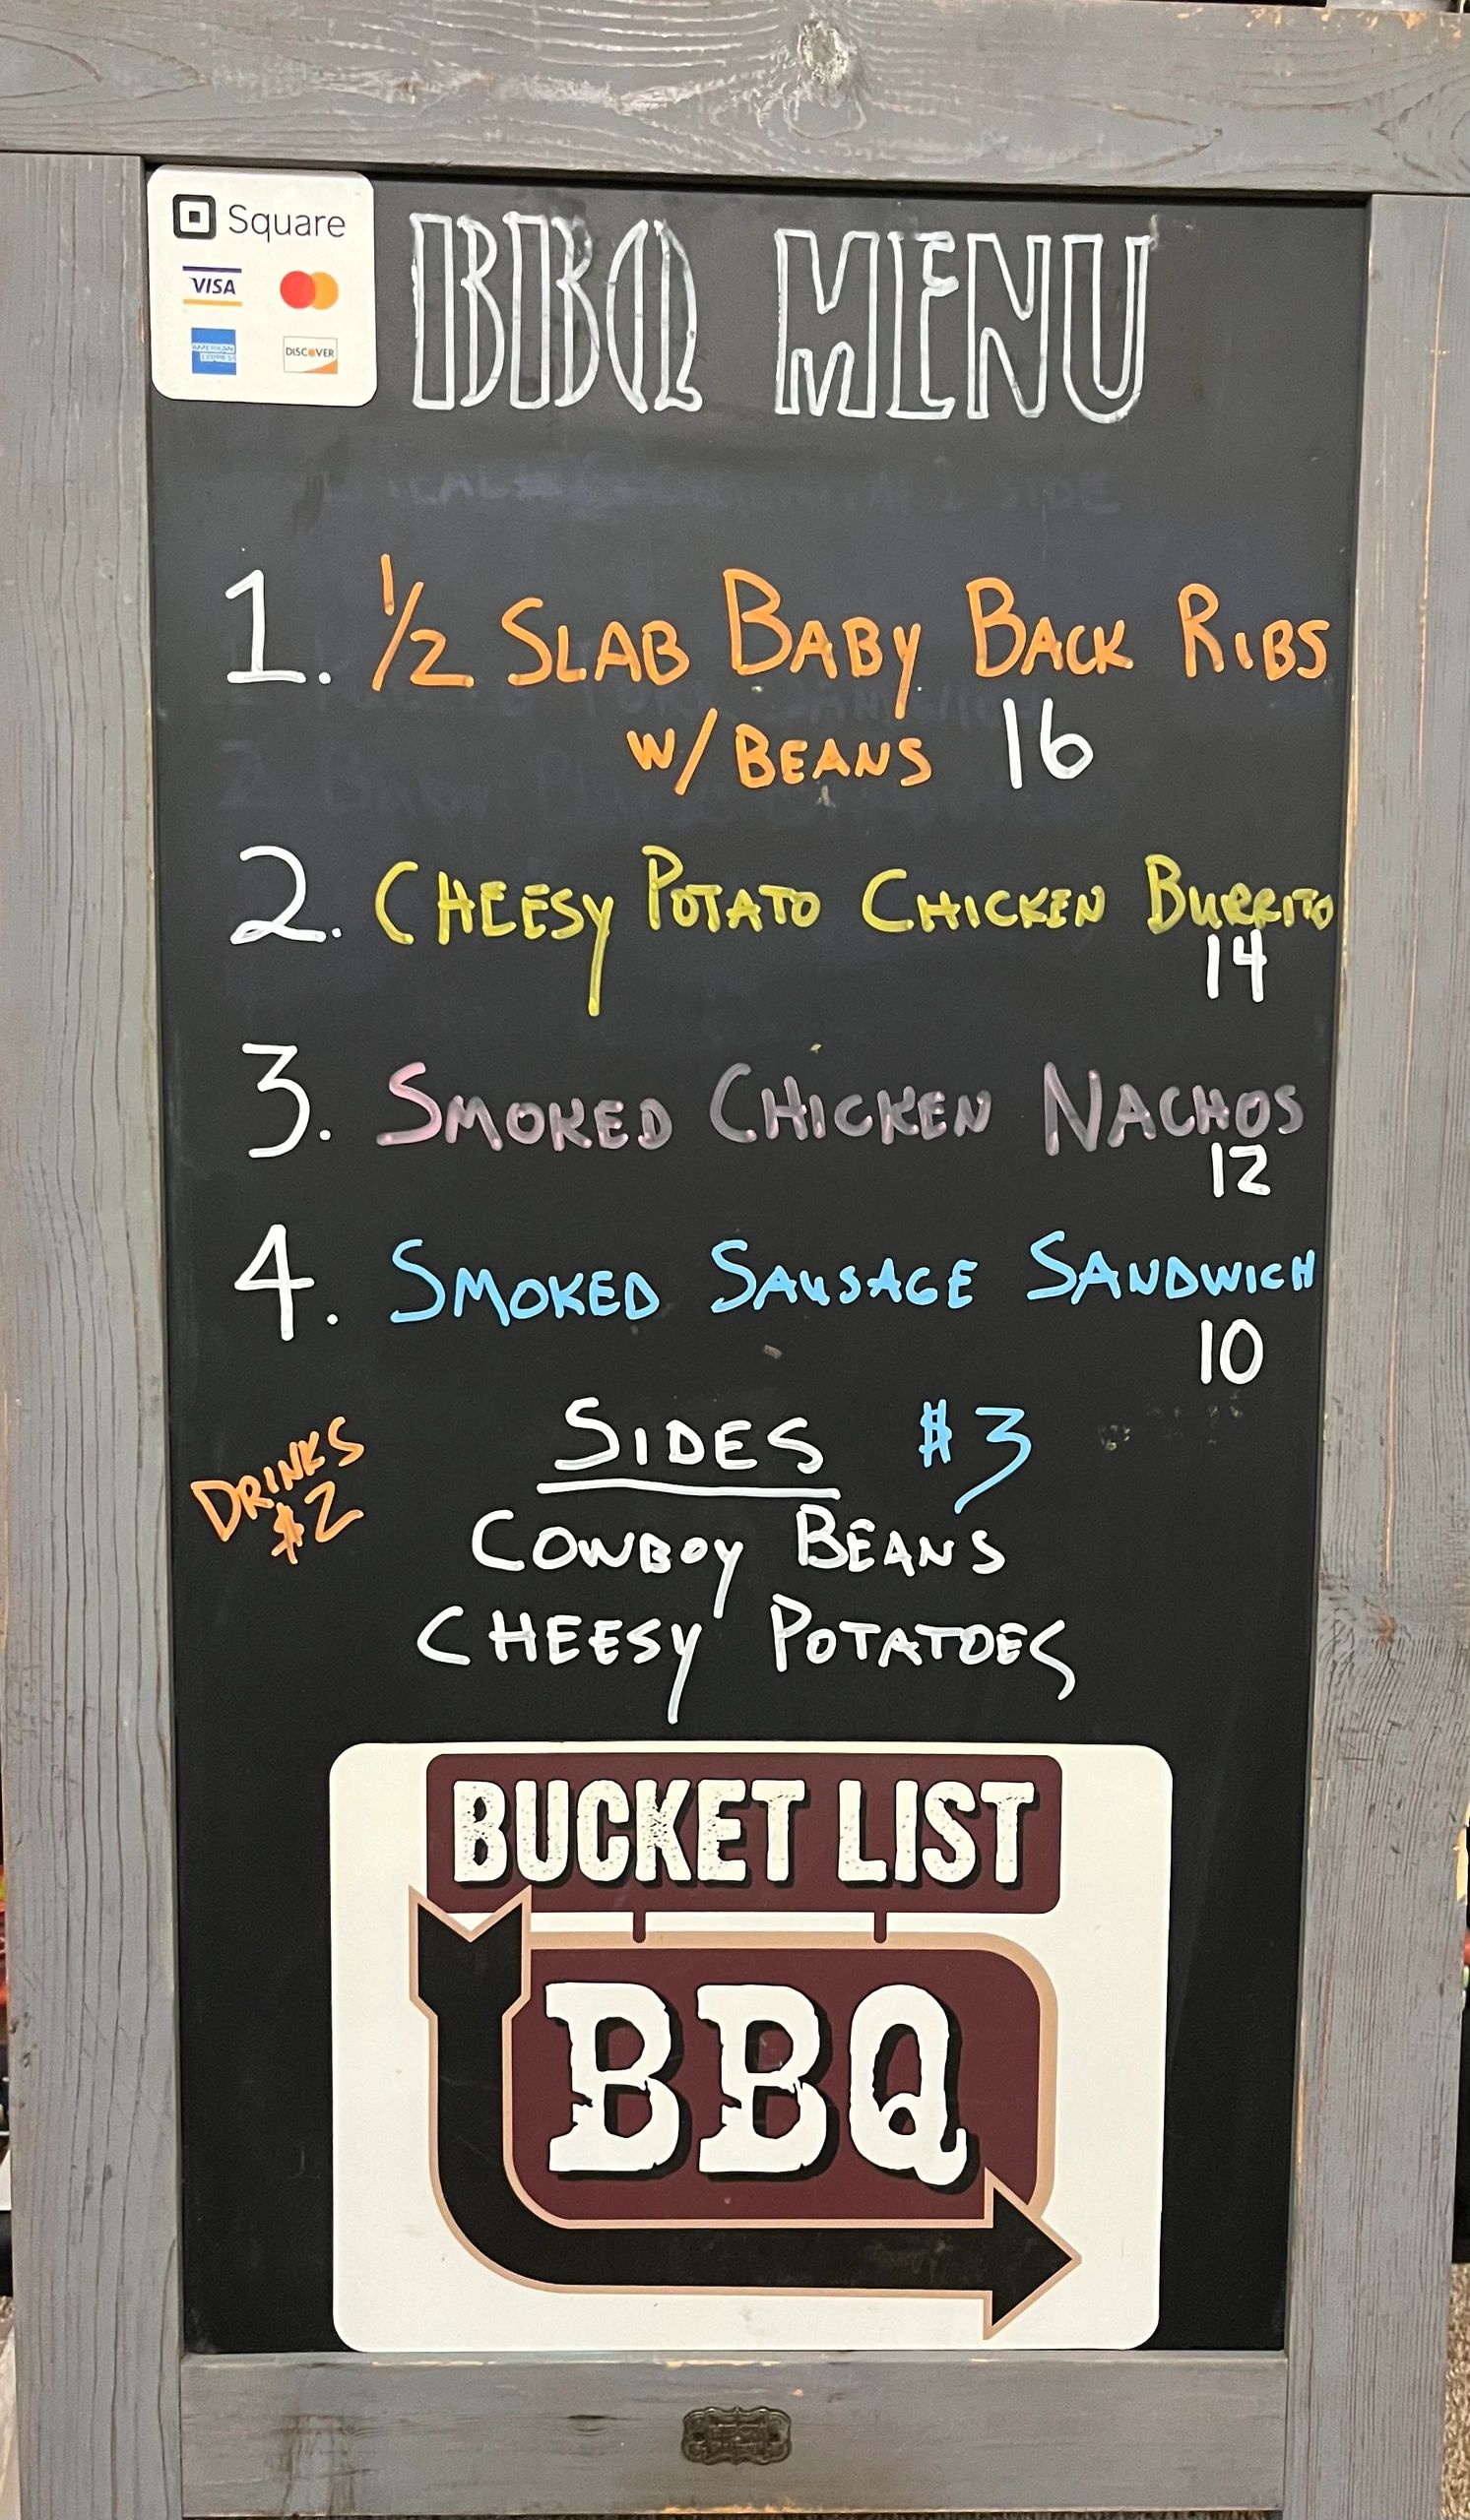 Square
VISA
AMERICAN EXPRESS
DISCOVER
BBQ MENU
1. 1/2 SLAB BABY BACK RIBS
W/ BEANS 16
2. CHEESY POTATO CHICKEN BURRITO
14
3. SMOKED CHICKEN NACHOS
12
4. SMOKED SAUSAGE SANDWICH
10
DRINKS
$2
SIDES $3
COWBOY BEANS
CHEESY POTATOES
BUCKET LIST
BBQ